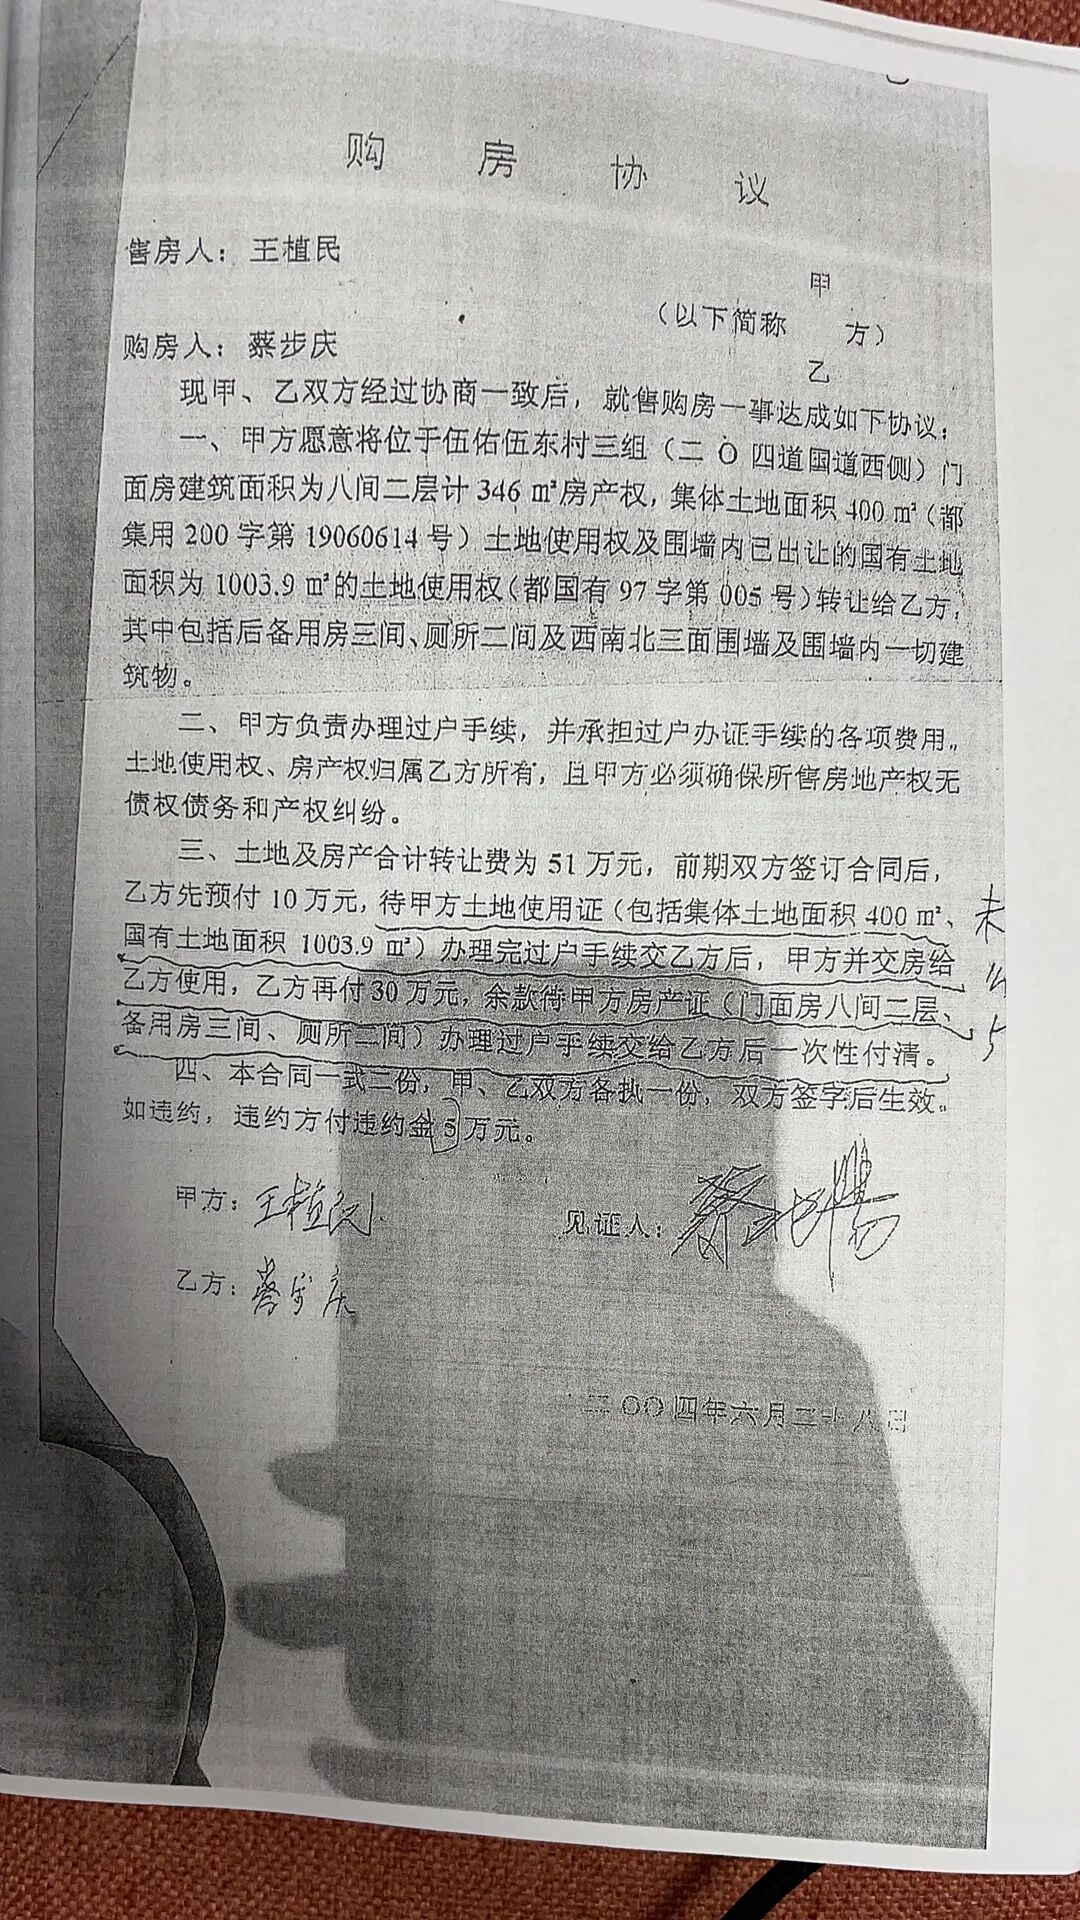 购房协议
售房人：王植民
甲
（以下简称 方）
购房人：蔡步庆
乙
现甲、乙双方经过协商一致后，就售购房一事达成如下协议：
一、甲方愿意将位于伍佑伍东村三组（二O四道国道西侧）门
面房建筑面积为八间二层计346㎡房产权，集体土地面积400㎡（都
集用200字第19060614号）土地使用权及围墙内已出让的国有土地
面积为1003.9㎡的土地使用权（都国有97字第005号）转让给乙方，
其中包括后备用房三间、厕所二间及西南北三面围墙及围墙内一切建
筑物。
二、甲方负责办理过户手续，并承担过户办证手续的各项费用。
土地使用权、房产权归属乙方所有，且甲方必须确保所售房地产权无
债权债务和产权纠纷。
三、土地及房产合计转让费为51万元，前期双方签订合同后，
乙方先预付10万元，待甲方土地使用证（包括集体土地面积400㎡、
国有土地面积1003.9㎡）办理完过户手续交乙方后，甲方并交房给
乙方使用，乙方再付30万元，余款待甲方房产证（门面房八间二层、
备用房三间、厕所二间）办理过户手续交给乙方后一次性付清。
四、本合同一式二份，甲、乙双方各执一份，双方签字后生效。
如违约，违约方付违约金5万元。
甲方：王植民
见证人：
乙方：蔡步庆
二〇〇四年六月二十八日